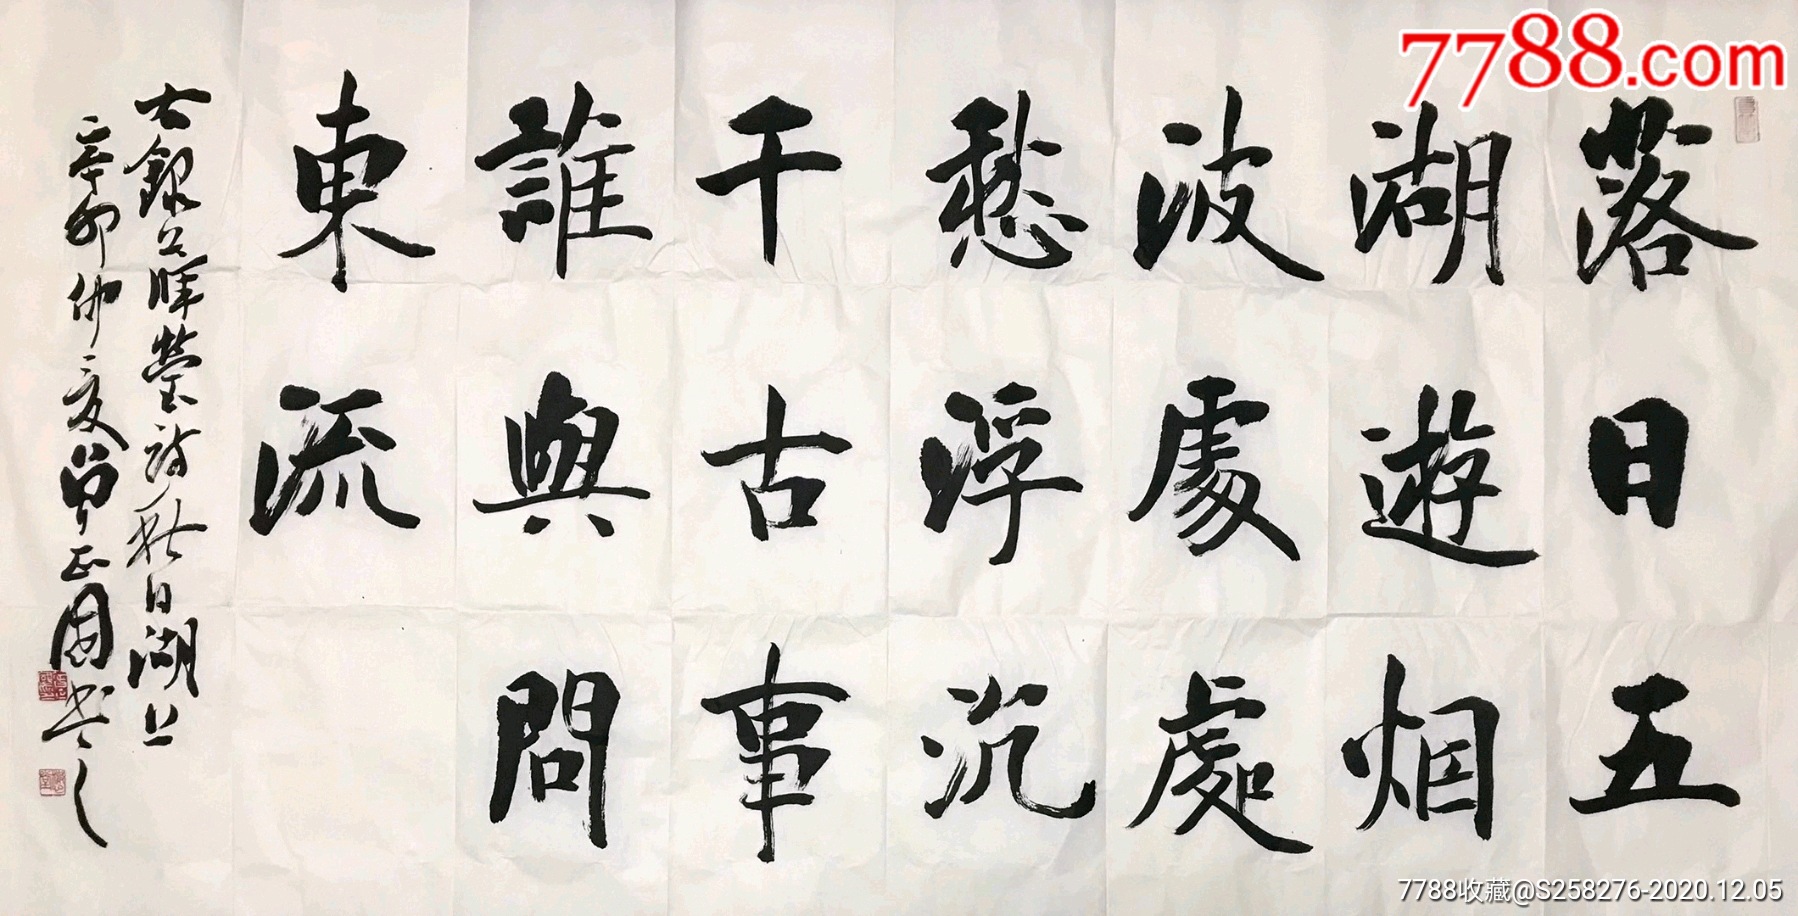 落日五
湖遊烟
波處處
愁浮沉
千古事
誰與問
東流
右錄瑩詩秋日湖上
辛卯仲夏曾正國書之
7788.com
7788收藏@S258276-2020.12.05